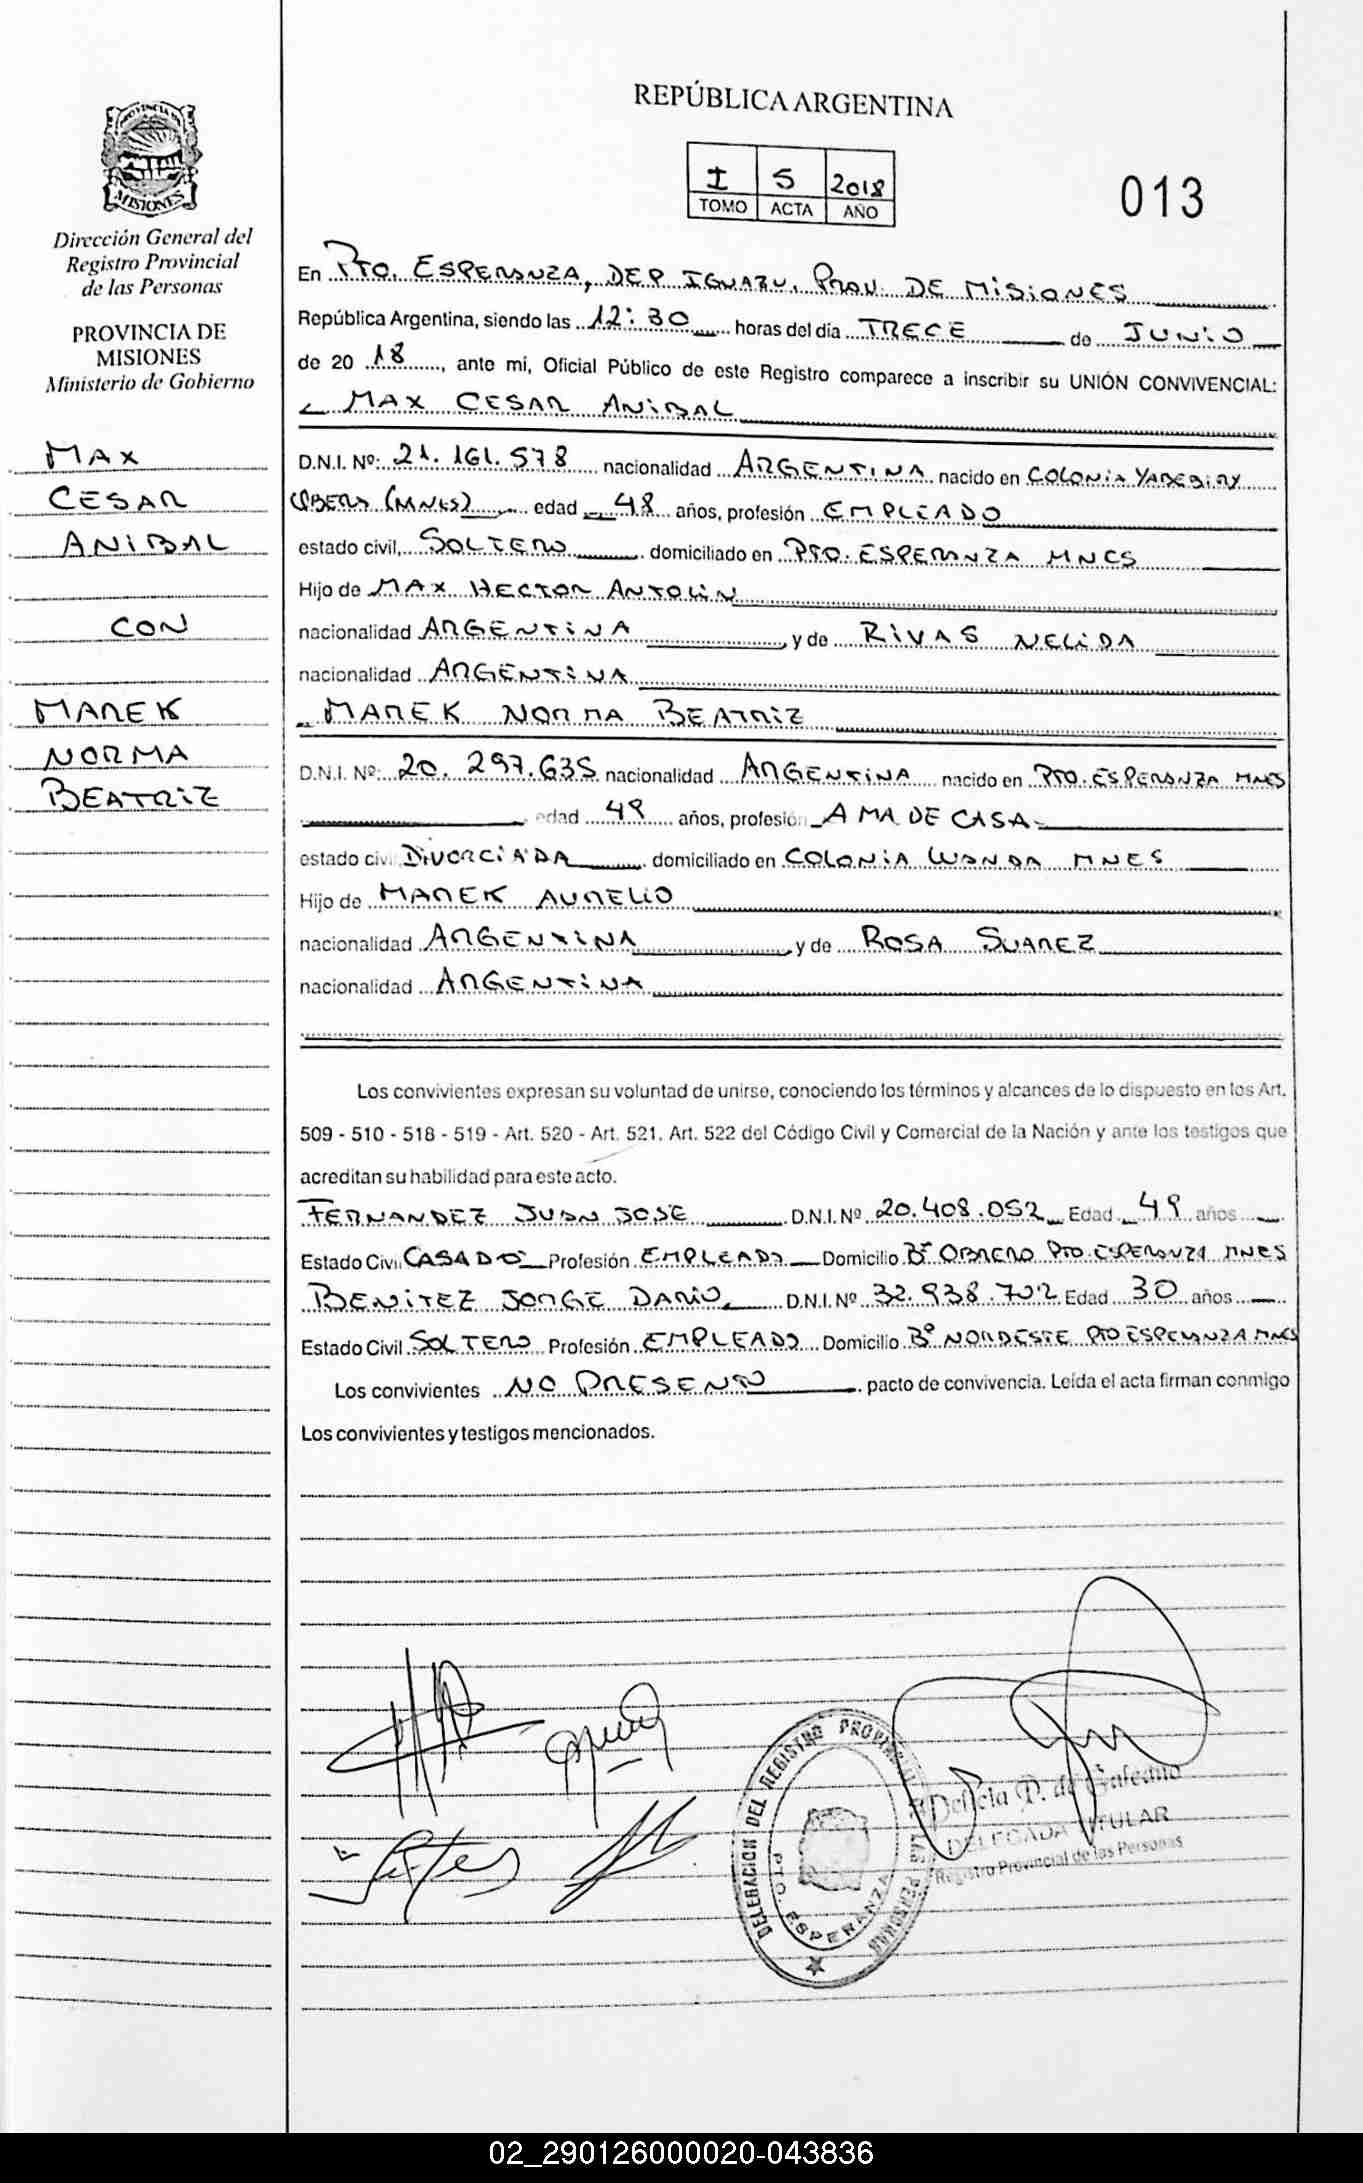 REPÚBLICA ARGENTINA
I 5 2018
TOMO ACTA AÑO
013
PROVINCIA DE
MISIONES
Dirección General del
Registro Provincial
de las Personas
PROVINCIA DE
MISIONES
Ministerio de Gobierno
MAX
CESAR
ANIBAL
CON
MAREK
NORMA
BEATRIZ
En PTO. ESPERANZA, DEP IGUAZU. PROV. DE MISIONES
República Argentina, siendo las 12:30 horas del día TRECE de JUNIO
de 20 18, ante mí, Oficial Público de este Registro comparece a inscribir su UNIÓN CONVIVENCIAL:
MAX CESAR ANIBAL
D.N.I. Nº: 21.161.578 nacionalidad ARGENTINA nacido en COLONIA YABEBIRY
OBERA (MNES) edad 48 años, profesión EMPLEADO
estado civil, SOLTERO domiciliado en PTO. ESPERANZA MNES
Hijo de MAX HECTOR ANTOLIN
nacionalidad ARGENTINA y de RIVAS NELIDA
nacionalidad ARGENTINA
MAREK NORMA BEATRIZ
D.N.I. Nº: 20.297.635 nacionalidad ARGENTINA nacido en PTO. ESPERANZA MNES
edad 49 años, profesión AMA DE CASA
estado civil DIVORCIADA domiciliado en COLONIA WANDA MNES
Hijo de MAREK AURELIO
nacionalidad ARGENTINA y de ROSA SUAREZ
nacionalidad ARGENTINA
Los convivientes expresan su voluntad de unirse, conociendo los términos y alcances de lo dispuesto en los Art.
509 - 510 - 518 - 519 - Art. 520 - Art. 521. Art. 522 del Código Civil y Comercial de la Nación y ante los testigos que
acreditan su habilidad para este acto.
FERNANDEZ JUAN JOSE D.N.I. Nº 20.408.052 Edad 49 años
Estado Civil CASADO Profesión EMPLEADO Domicilio Bº OBRERO PTO. ESPERANZA MNES
BENITEZ JORGE DARIO D.N.I. Nº 32.938.702 Edad 30 años
Estado Civil SOLTERO Profesión EMPLEADO Domicilio Bº NORDESTE PTO ESPERANZA MNES
Los convivientes NO PRESENTO pacto de convivencia. Leída el acta firman conmigo
Los convivientes y testigos mencionados.
DELEGACION DEL REGISTRO PROVINCIAL DE LAS PERSONAS
PTO ESPERANZA
DELEGADA TITULAR
Registro Provincial de las Personas
02_290126000020-043836